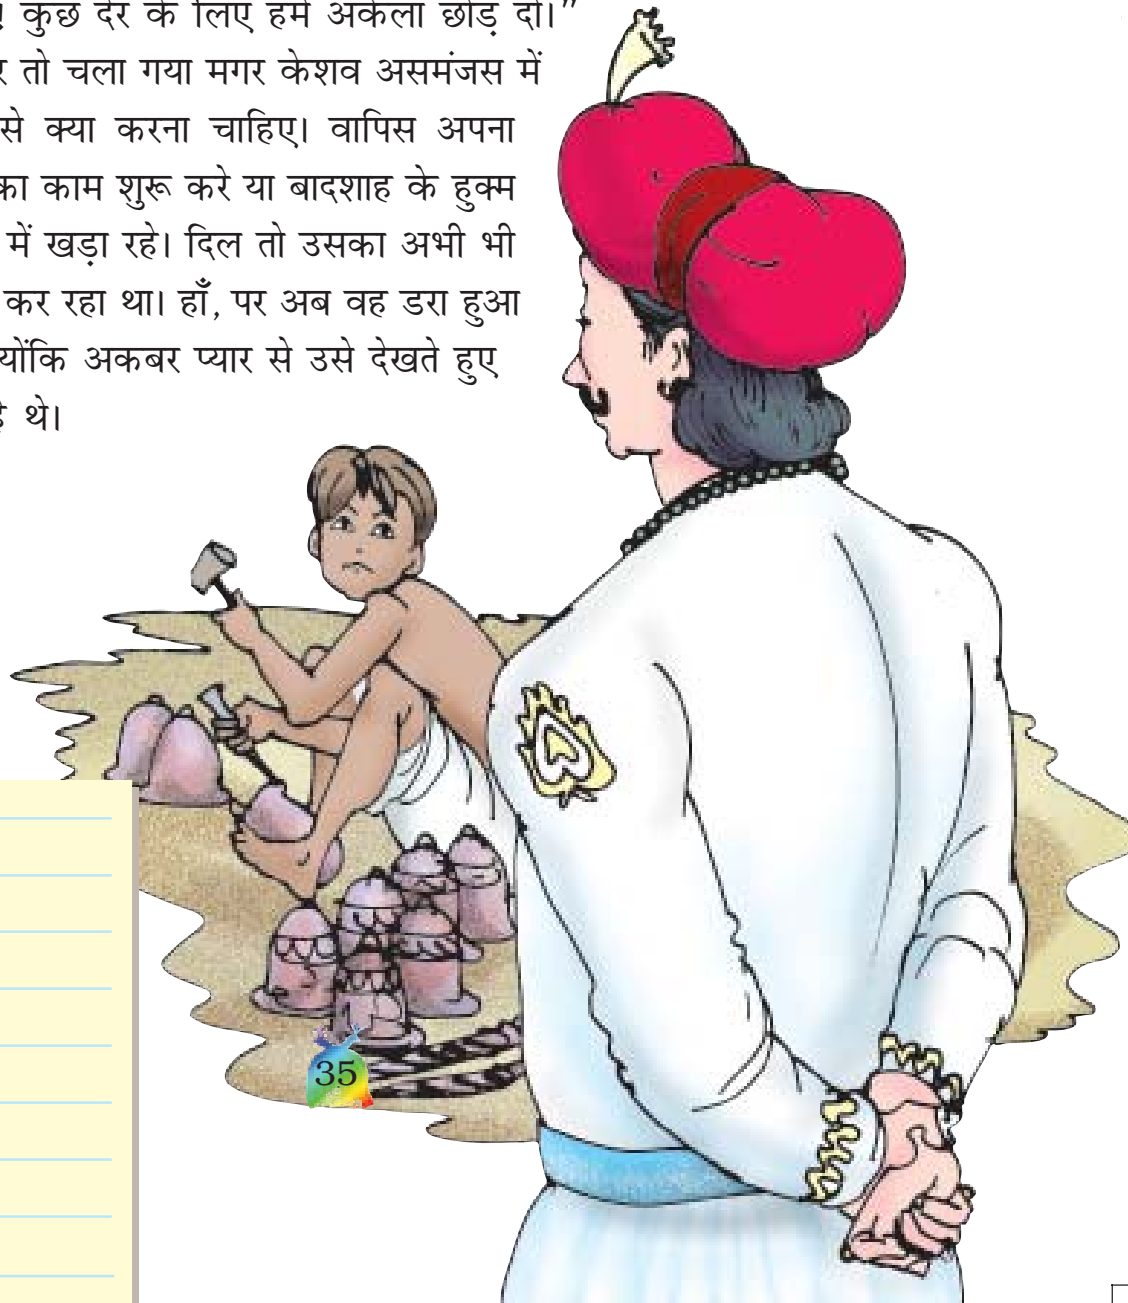 कुछ देर के लिए हमें अकेला छोड़ दो।”
तो चला गया मगर केशव असमंजस में
से क्या करना चाहिए। वापिस अपना
का काम शुरू करे या बादशाह के हुक्म
में खड़ा रहे। दिल तो उसका अभी भी
कर रहा था। हाँ, पर अब वह डरा हुआ
योंकि अकबर प्यार से उसे देखते हुए
थे।
35